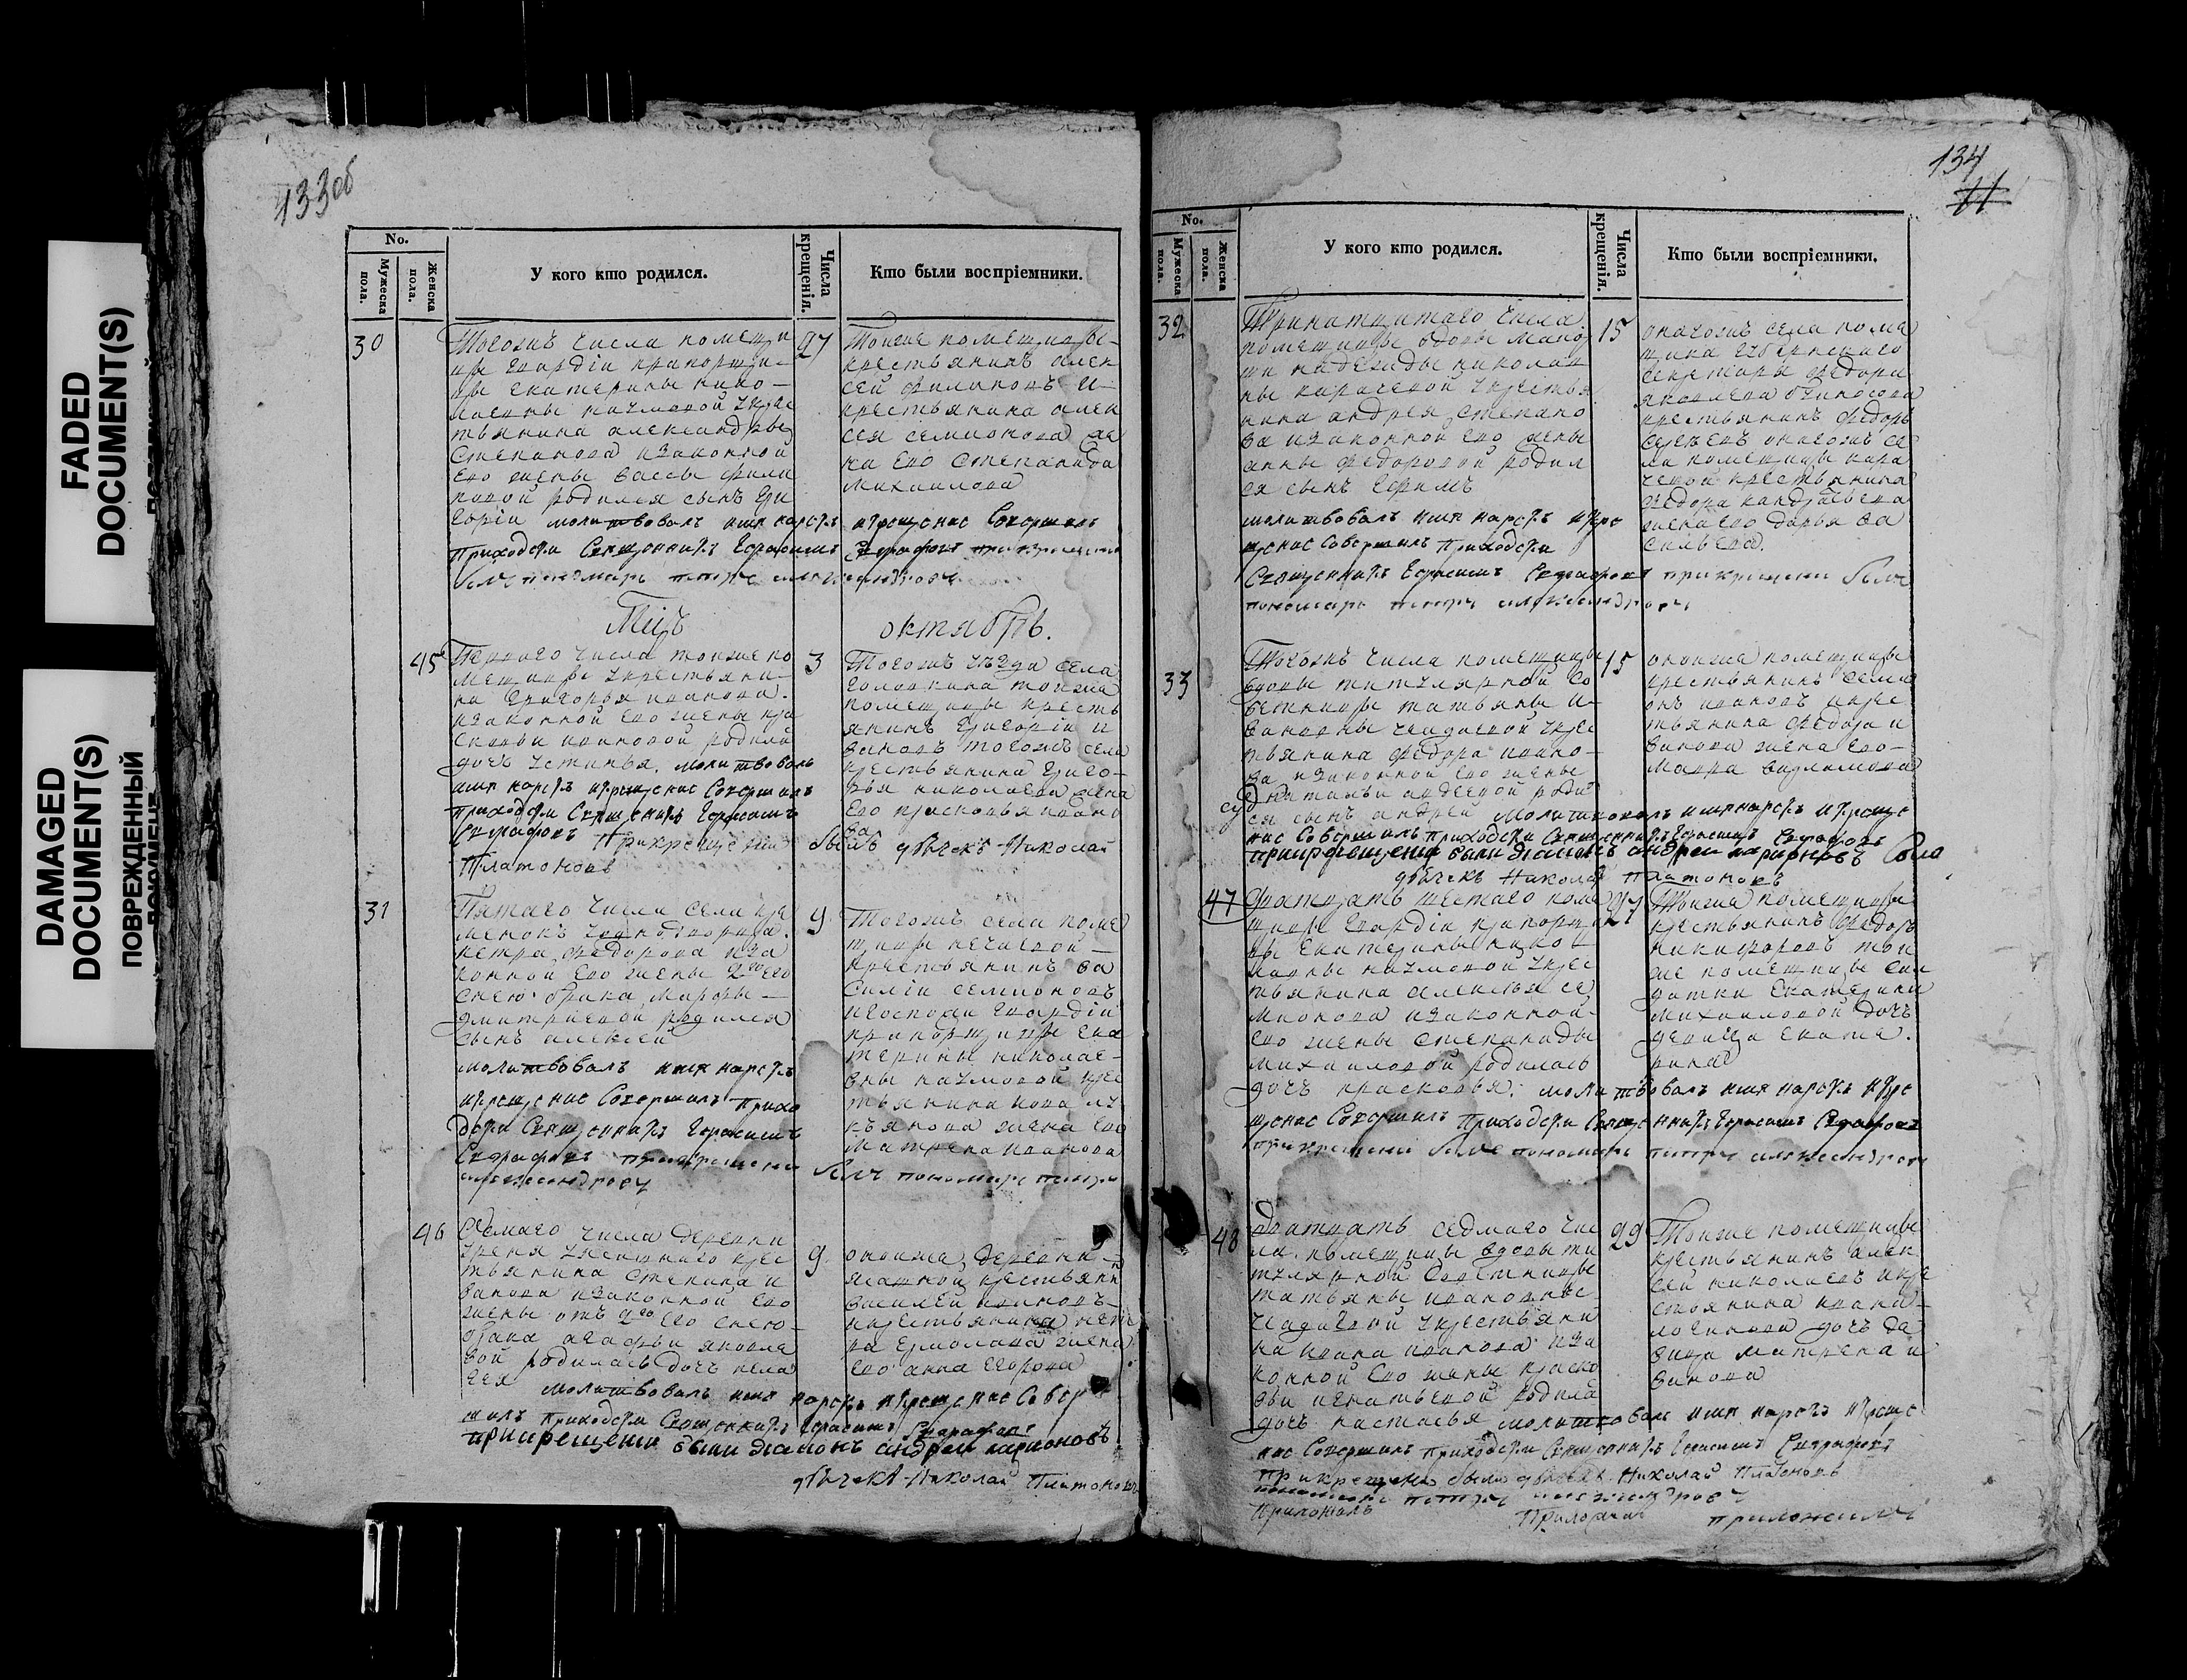 FADED
DOCUMENT(S)
DAMAGED
DOCUMENT(S)
ПОВРЕЖДЕННЫЙ
133об
No.
Мужеска пола.
Женска пола.
У кого кто родился.
Числа крещенія.
Кто были воспріемники.
30
Тогожъ числа помещи
цы гвардіи прапорщи-
цы екатерины нико-
лаевны наумовой укрес
тьянина александры
Степанова изаконной
его жены вассы фили
повой родился сынъ гри
горіи молитвовалъ имя нарекъ
Приходски Священникъ Герасимъ
былъ пономарь петръ александровъ
27
Тоижже помещицы-
крестьянинъ алек
сей филиповъ и-
крестьянина алек
сея семионова же
на его степанида
михаилова
икрещение Совершилъ
Серафовъ прикрещении
Мцъ октябрь.
45
Перваго числа тоижже по
мещицы укрестьяни-
на григорья иванова.
изаконной его жены пра
сковьи ивановой родила
дочь устинья. молитвовалъ
имя нарекъ икрещение Совершилъ
приходски Священникъ Герасимъ
Серафовъ Прикрещении былъ дьячекъ Николай
Платоновъ
3
Тогожъ уезда села
головкина тоижже
помещицы кресть
янинъ григоріи и
вановъ тогожъ села
крестьянина григо-
рья николаева жена
его прасковья ивано
ва
31
Пятаго числа села кре
менокъ уоднодворца.
петра федорова иза
конной его жены 2го его
снею брака марфы-
дмитріевой родился
сынъ алексей
молитвовалъ имя нарекъ
икрещение Совершилъ Прихо
дски Священникъ Герасимъ
Серафовъ прикрещении былъ пономарь петръ
александровъ
9
Тогожъ села поме
щицы нечаевой-
крестьянинъ ва
силіи семионовъ
игоспожи гвардіи
прапорщицы ека
терины николае-
вны наумовой крес
тьянина иова лу
кьянова жена его
матрена иванова
46
Седмаго числа деревни
уясашнаго крес
тьянина степана и
ванова изаконной его
жены отъ 2го его снею-
брака агафьи яковле
вой родилась дочь пела
гея молитвовалъ имя нарекъ икрещение Совер
шилъ приходски Священникъ Герасимъ Серафовъ
прикрещении были діаконъ андреи ларионовъ
дьячекъ Николай Платоновъ
9
оноиже деревни-
ясашной крестьянин
василей ивановъ-
икрестьянина пет
ра ермолаева жена
его анна егорова
134
11
No.
Мужеска пола.
Женска пола.
У кого кто родился.
Числа крещенія.
Кто были воспріемники.
32
Тринатцатаго числа
помещицы вдовы маіо
ши надежды николае
ны карачевой укрестья
нина андрея степано
ва изаконной его жены
анны федоровой родил
ся сынъ ефимъ
молитвовалъ имя нарекъ икре
щение Совершилъ Приходски
Священникъ Герасимъ Серафовъ прикрещении былъ
пономарь петръ александровъ
15
онагожъ села поме
щика губернскаго
секретаря федора
яковлева
крестьянинъ федоръ
сергеевъ онагожъ се
ла помещицы кара
чевой крестьянина
федора
жена его дарья ва
сильева.
33
Тогожъ числа помещицы
вдовы титулярной со
ветницы татьяны и-
вановны чеадаевой укрес
тьянина федора ивано-
ва изаконной его жены
игнатьи авдеевой роди
ся сынъ андреи молитвовалъ имя нарекъ икреще
ние Совершилъ приходски Священникъ Герасимъ Серафовъ
прикрещении были діаконъ андреи ларионовъ
дьячекъ Николай Платоновъ
15
оноиже помещицы
крестьянинъ семи
онъ ивановъ икрес
тьянина федора и
ванова жена его-
мавра
47
Дватцать шестаго поме
щицы гвардіи прапорщи
цы екатерины нико
лаевны наумовой укрес
тьянина алексея се
мионова изаконной-
его жены степаниды
михаиловой родилась
дочь прасковья: молитвовалъ имя нарекъ икре
щение Совершилъ Приходски Священникъ Герасимъ Серафовъ
прикрещении былъ пономарь петръ александровъ
27
Тоижже помещицы
крестьянинъ федоръ
никифоровъ той
же помещицы сол
датки екатерины
михаиловой дочь
девица екате.
рина
48
Дватцать седмаго чис
ла. помещицы вдовы ти
тулярной советницы
татьяны ивановны-
чеадаевой укрестьяни
на ивана иванова иза
конной его жены праско
вьи игнатьевой родила
дочь настасья молитвовалъ имя нарекъ икреще
ние Совершилъ приходски Священникъ Герасимъ Серафовъ
Прикрещении были дьячекъ Николай Платоновъ
пономарь петръ александровъ
Приложилъ Приложилъ приложилъ
29
Тоиже помещицы
крестьянинъ алек
сей николаевъ икре
стьянина ивана-
логинова дочь де
вица матрена и
ванова